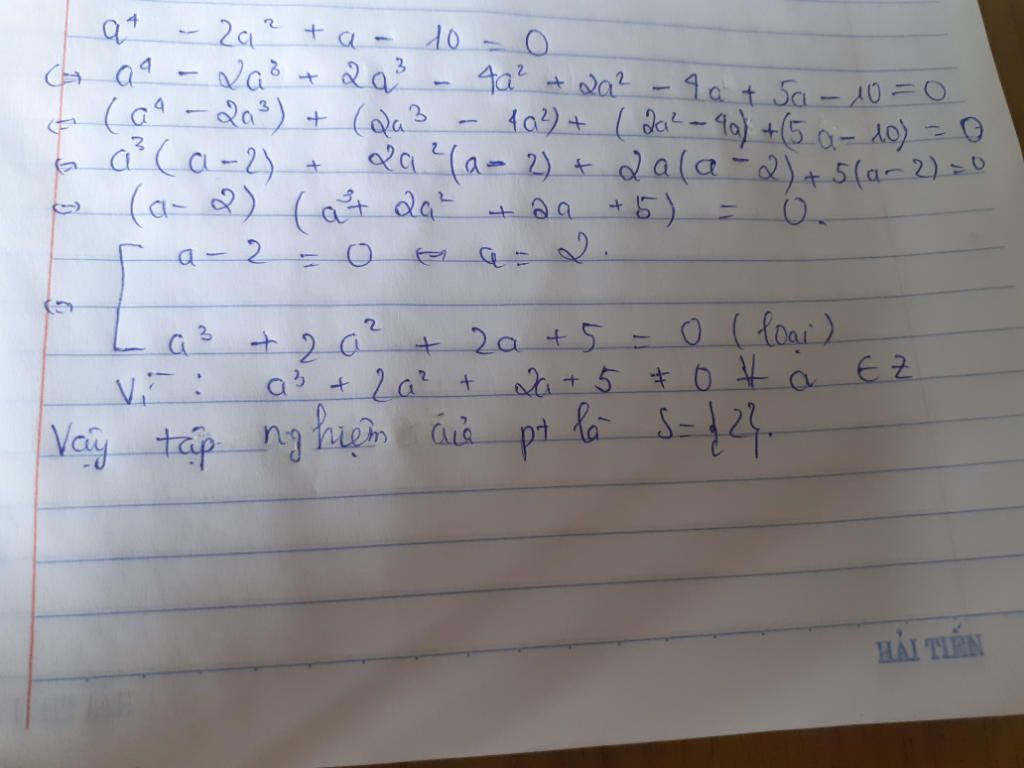 a⁴ - 2a² + a - 10 = 0
⇔ a⁴ - 2a³ + 2a³ - 4a² + 2a² - 4a + 5a - 10 = 0
⇔ (a⁴ - 2a³) + (2a³ - 4a²) + (2a² - 4a) + (5a - 10) = 0
⇔ a³(a - 2) + 2a²(a - 2) + 2a(a - 2) + 5(a - 2) = 0
⇔ (a - 2) (a³ + 2a² + 2a + 5) = 0.
a - 2 = 0 ⇔ a = 2.
⇔ [
a³ + 2a² + 2a + 5 = 0 (loại)
Vì : a³ + 2a² + 2a + 5 ≠ 0 ∀ a ∈ Z
Vậy tập nghiệm của pt là S = {2}.
HẢI TIẾN